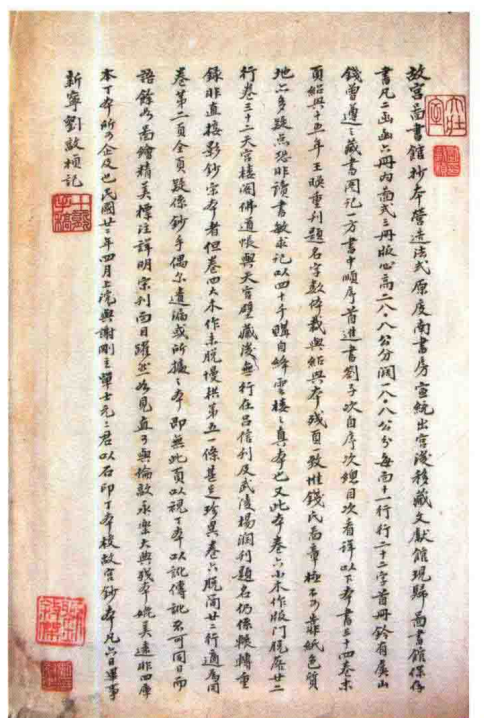 故宫圖書館抄本營造法式原度南書房宣統出宮後移藏文獻館現歸圖書館保存
書凡二函函六册内圖式三册版心高二八·八公分闊一八·八公分每面十一行行二十二字首册鈐有虞山
錢曾遵王藏書圖記一方書中順序首進書劄子次自序次總目次看詳以下本書三十四卷末
頁紹興十五年王晚重刊題名字數倚裁與紹興本殘頁一致惟錢氏圖章極不可靠紙色質
地亦多疑點恐非讀書敏求記以四十千購自絳雲樓之真本也又此本卷六小木作版門脱落廿二
行卷三十二天宫樓閣佛道帳與天宫壁藏後無行在吕信刊及武陵楊潤刊題名仍係輾轉重
録非直接影鈔宋本者但卷四大木作未脱慢栱第五一條甚足珍異卷六脱簡廿二行適爲同
卷第二頁全頁疑係鈔手偶爾遺漏或所據之本即無此頁以視丁本以訛傳訛不可同日而
語餘如圖繪精美標注詳明宋刊面目躍然如見直可與倫敦永樂大典殘本媲美遠非四庫
本丁本所可企及也民國廿二年四月上浣與謝剛主單士元二君以石印丁本校故宫鈔本凡六日畢事
新寧劉敦楨記